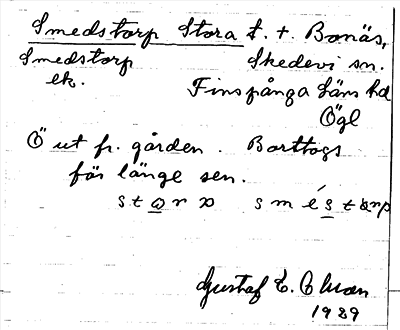 Smedstorp Stora t. t. Bonäs,
Smedstorp Skedevi sn.
ek. Finspånga läns hd
Ögl
Ö ut fr. gården. Borttogs
för länge sen.
Gustaf E.
1929